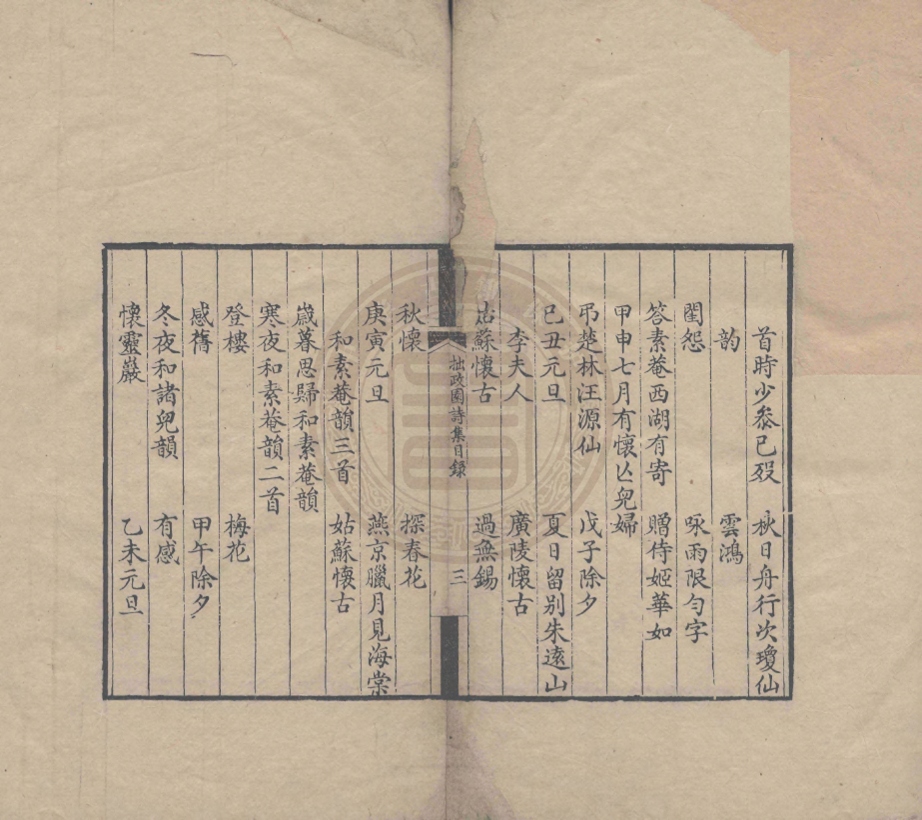 首時少叅已歿　秋日舟行次瓊仙
韵　雲鴻
閨怨　咏雨限勻字
答素菴西湖有寄　贈侍姬華如
甲申七月有懷亾兒婦
弔楚林汪源仙　戊子除夕
已丑元旦　夏日留别朱逺山
李夫人　廣陵懷古
姑蘇懷古　過無錫
拙政園詩集目録　三
秋懷　探春花
庚寅元旦　燕京臘月見海棠
和素菴韻三首　姑蘇懷古
歳暮思歸和素菴韻
寒夜和素菴韻二首
登樓　梅花
感舊　甲午除夕
冬夜和諸兒韻　有感
懷靈巖　乙未元旦